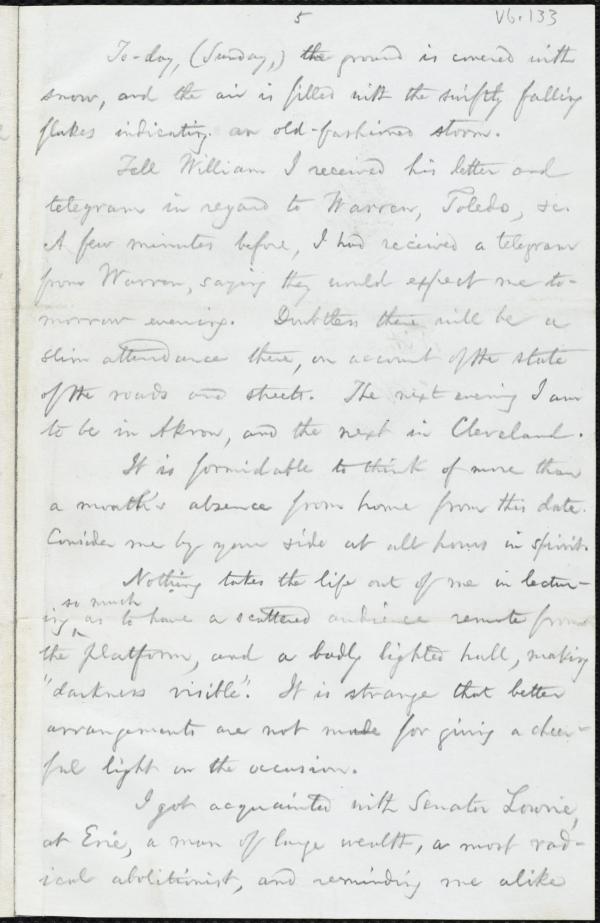 5
V6.133
To-day, (Sunday,) the ground is covered with
snow, and the air is filled with the swiftly falling
flakes indicating an old-fashioned storm.
Tell William I received his letter and
telegram in regard to Warren, Toledo, &c.
A few minutes before, I had received a telegram
from Warren, saying they would expect me to-
morrow evening. Doubtless there will be a
slim attendance there, on account of the state
of the roads and streets. The next evening I am
to be in Akron, and the next in Cleveland.
It is formidable to think of more than
a month's absence from home from this date.
Consider me by your side at all hours in spirit.
Nothing takes the life out of me in lectur-
so much
ing as to have a scattered audience remote from
the platform, and a badly lighted hall, making
"darkness visible". It is strange that better
arrangements are not made for giving a cheer-
ful light on the occasion.
I got acquainted with Senator Lowrie,
at Erie, a man of large wealth, a most rad-
ical abolitionist, and reminding me alike